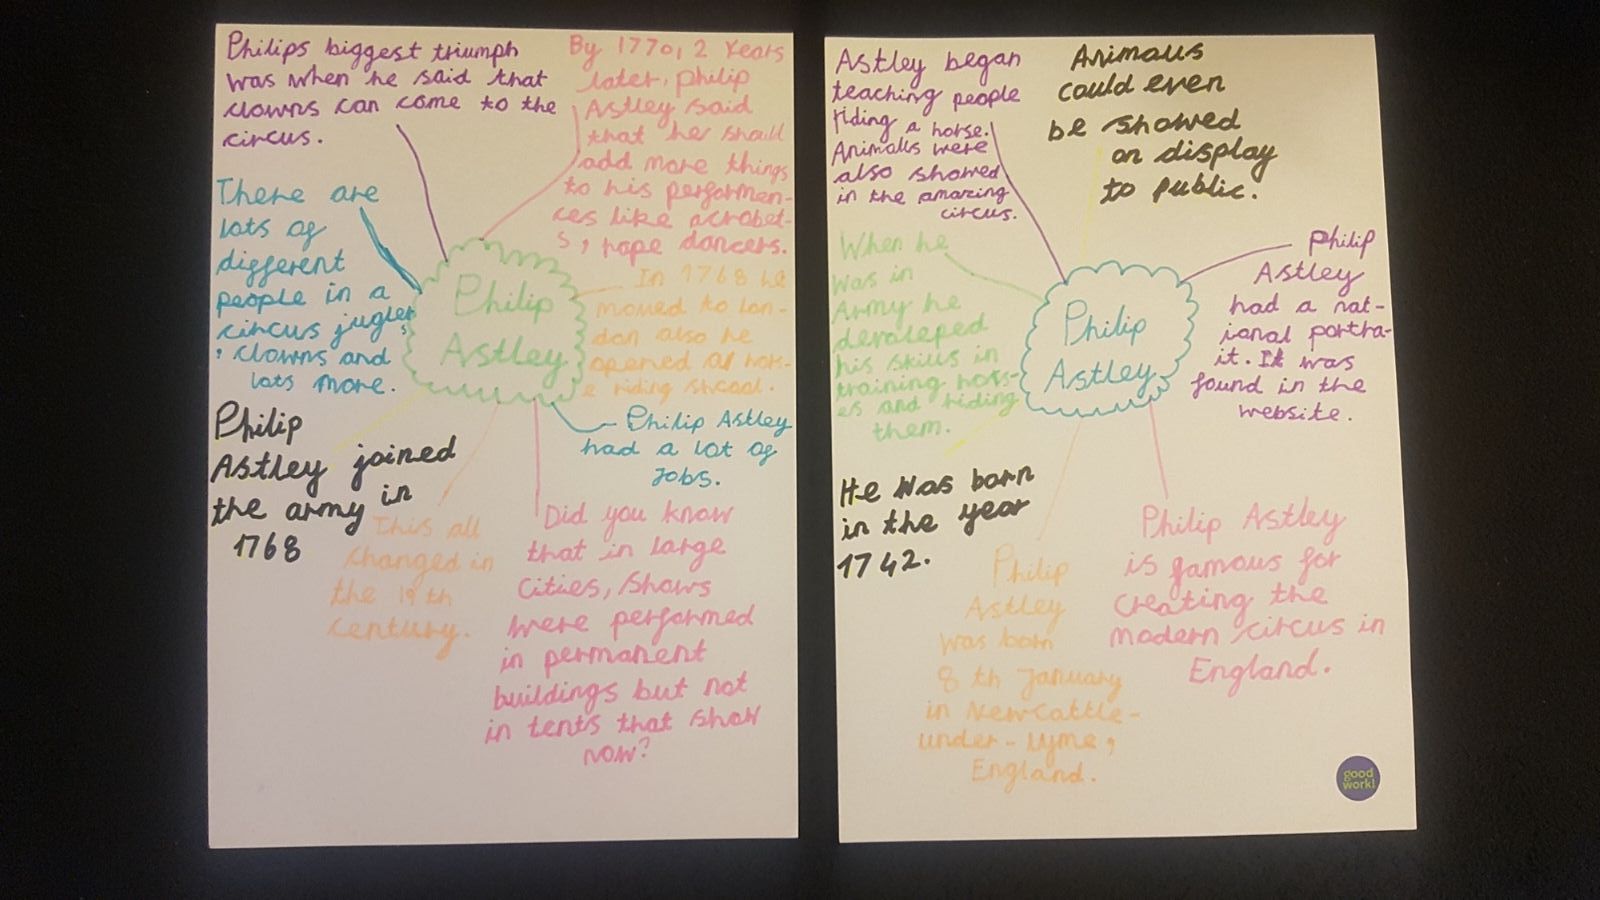 Philips biggest triumph
was when he said that
clowns can come to the
circus.
By 1770, 2 Years
later, philip
Astley said
that he should
add more things
to his performen-
ces like acrobet-
s, rope dancers.
There are
lots of
different
people in a
circus jugler
s
, clowns and
lots more.
Philip
Astley
In 1768 he
moved to lon-
don also he
opened a hors-
e riding shcool.
Philip Astley
had a lot of
Jobs.
Philip
Astley joined
the army in
1768
This all
changed in
the 19th
century.
Did you know
that in large
cities, shows
were performed
in permanent
buildings but not
in tents that show
now?
Astley began
teaching people
riding a horse.
Animalls were
also showed
in the amazing
circus.
Animalls
could even
be showed
on display
to public.
When he
was in
Army he
devoleped
his skills in
training hors-
es and riding
them.
Philip
Astley
Philip
Astley
had a nat-
ional portra-
it. It was
found in the
website.
He was born
in the year
1742.
Philip
Astley
was born
8 th January
in Newcattle-
under-lyme,
England.
Philip Astley
is famous for
creating the
modern circus in
England.
good
work!